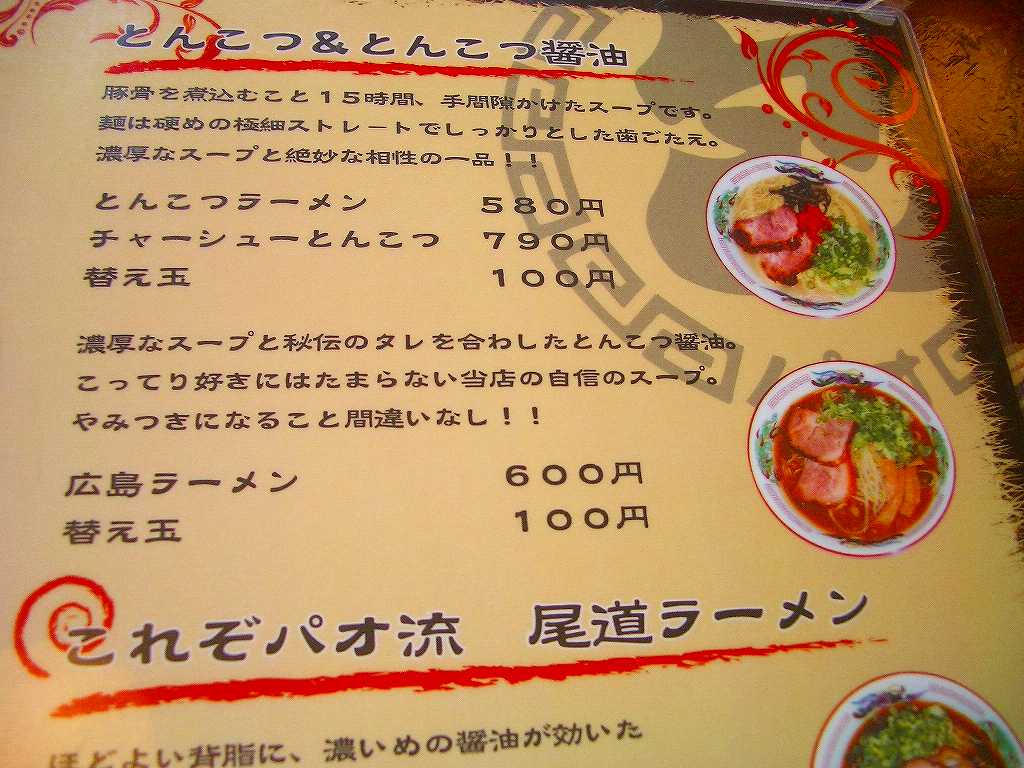 とんこつ&とんこつ醤油
豚骨を煮込むこと15時間、手間隙かけたスープです。
麺は硬めの極細ストレートでしっかりとした歯ごたえ。
濃厚なスープと絶妙な相性の一品!!
とんこつラーメン 580円
チャーシューとんこつ 790円
替え玉 100円
濃厚なスープと秘伝のタレを合わしたとんこつ醤油。
こってり好きにはたまらない当店の自信のスープ。
やみつきになること間違いなし!!
広島ラーメン 600円
替え玉 100円
これぞパオ流 尾道ラーメン
ほどよい背脂に、濃いめの醤油が効いた